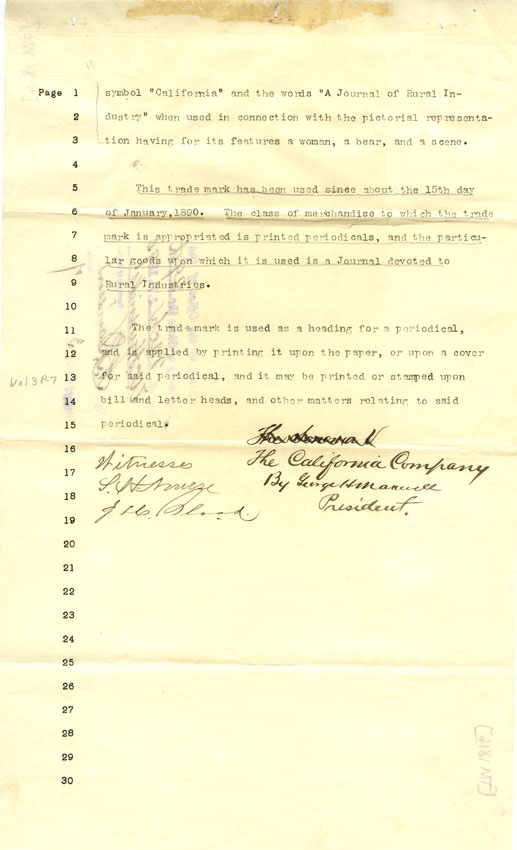 Page 1 symbol "California" and the words "A Journal of Rural In-
2 dustry" when used in connection with the pictorial representa-
3 tion having for its features a woman, a bear, and a scene.
4
5 This trade mark has been used since about the 15th day
6 of January,1890. The class of merchandise to which the trade
7 mark is appropriated is printed periodicals, and the particu-
8 lar goods upon which it is used is a Journal devoted to
9 Rural Industries.
10
11 The trade mark is used as a heading for a periodical,
12 and is applied by printing it upon the paper, or upon a cover
Vol 3 P.7 13 for said periodical, and it may be printed or stamped upon
14 bill and letter heads, and other matters relating to said
15 periodical.
16
17 Witnesses The California Company
18 By George H Maxwell
19 President.
20
21
22
23
24
25
26
27
28
29
30